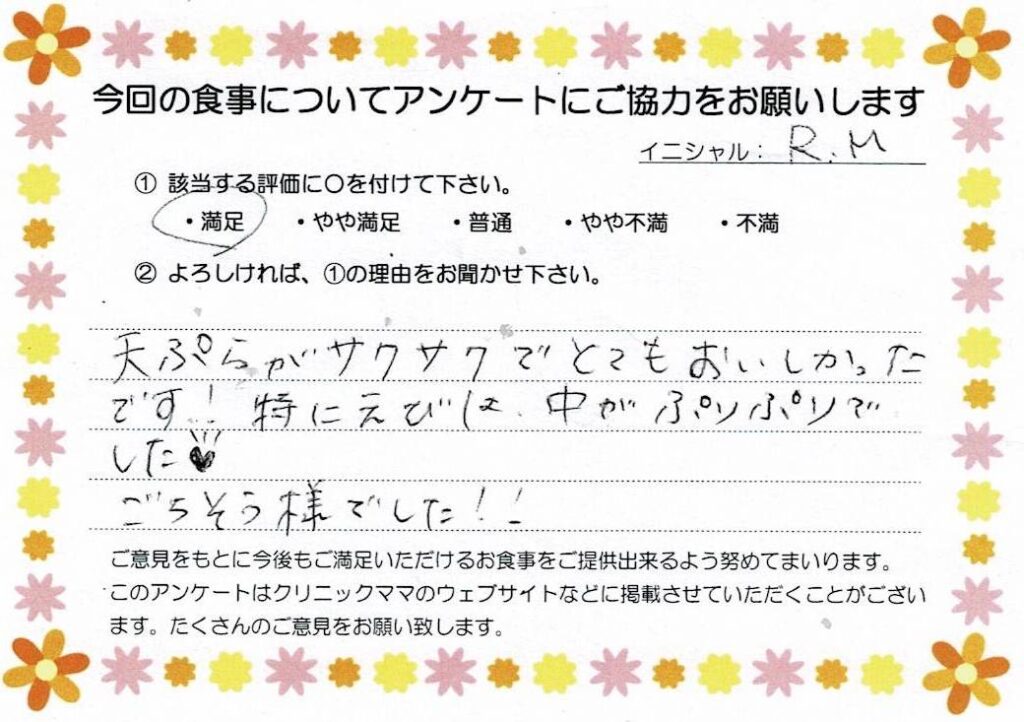 今回の食事についてアンケートにご協力をお願いします
イニシャル： R.M
① 該当する評価に〇を付けて下さい。
・満足 ・やや満足 ・普通 ・やや不満 ・不満
② よろしければ、①の理由をお聞かせ下さい。
天ぷらがサクサクでとてもおいしかった
です！特にえびは、中がぷりぷりで
した♥
ごちそう様でした！！
ご意見をもとに今後もご満足いただけるお食事をご提供出来るよう努めてまいります。
このアンケートはクリニックママのウェブサイトなどに掲載させていただくことがござい
ます。たくさんのご意見をお願い致します。